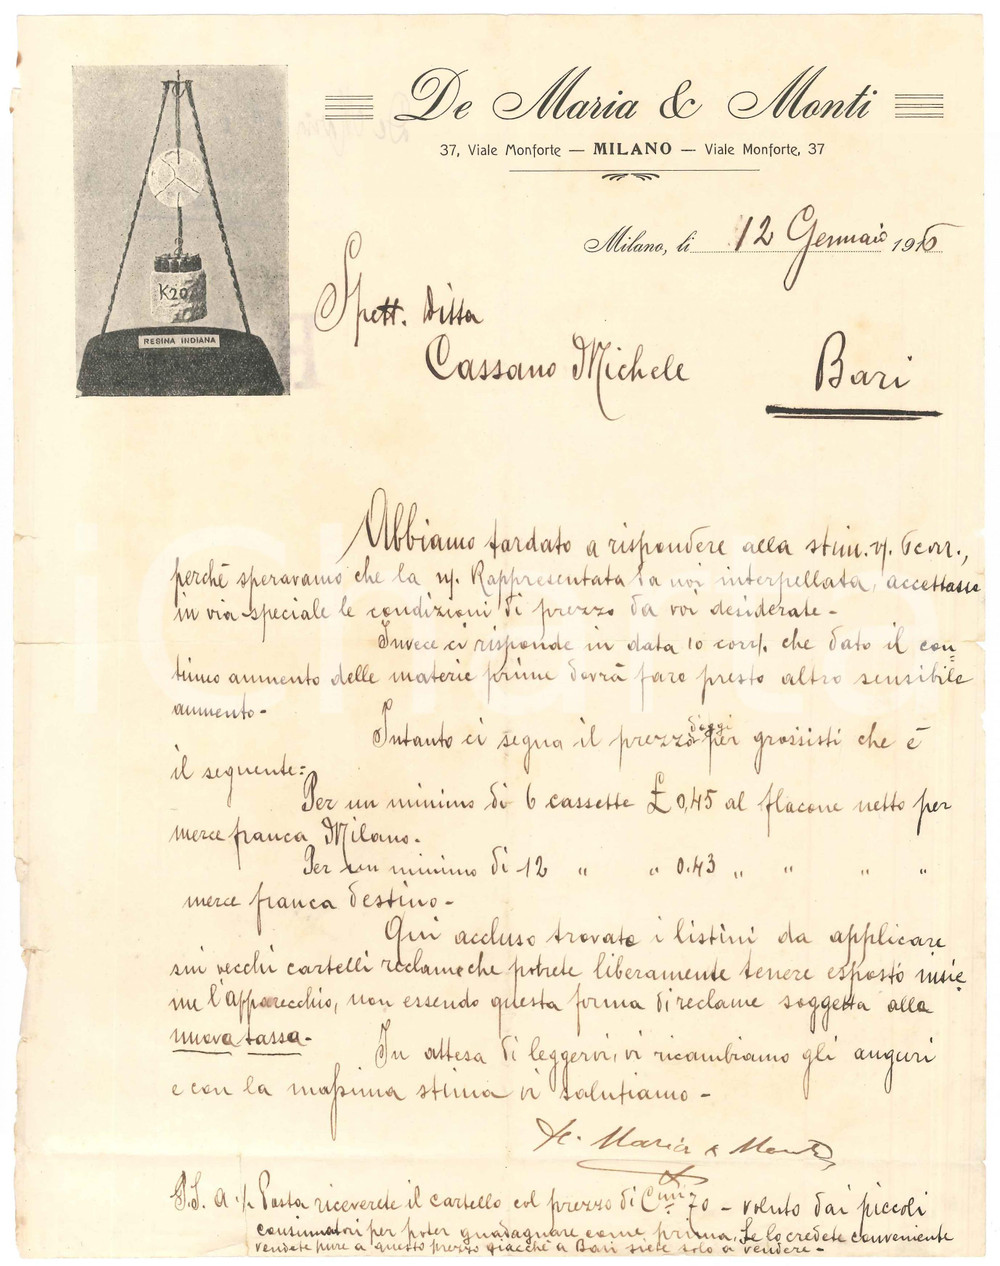 De Maria & Monti
37, Viale Monforte — MILANO — Viale Monforte, 37
Milano, li 12 Gennaio 1916
K20
RESINA INDIANA
Spett. Ditta
Cassano Michele
Bari
Abbiamo tardato a rispondere alla stim. v/. 6 corr.,
perchè speravamo che la n/. Rappresentata da noi interpellata, accettasse
in via speciale le condizioni di prezzo da voi desiderate -
Invece ci risponde in data 10 corr/. che dato il con=
tinuo aumento delle materie prime dovrà fare presto altro sensibile
aumento -
Intanto ci segna il prezzo d'oggi per grossisti che è
il seguente:
Per un minimo di 6 cassette £ 0,45 al flacone netto per
merce franca Milano -
Per un minimo di 12 " " 0.43 " " " "
merce franca destino -
Qui accluso trovate i listini da applicare
sui vecchi cartelli reclame che potrete liberamente tenere esposto insie=
me l'apparecchio, non essendo questa forma di reclame soggetta alla
nuova tassa -
In attesa di leggervi, vi ricambiamo gli auguri
e con la massima stima vi salutiamo -
De Maria & Monti
P.S. a 1/2 Posta riceverete il cartello col prezzo di Cmi 70 - voluto dai piccoli
consumatori per poter guadagnare come prima. Se lo credete conveniente
vendete pure a questo prezzo giacchè a Bari siete solo a vendere -